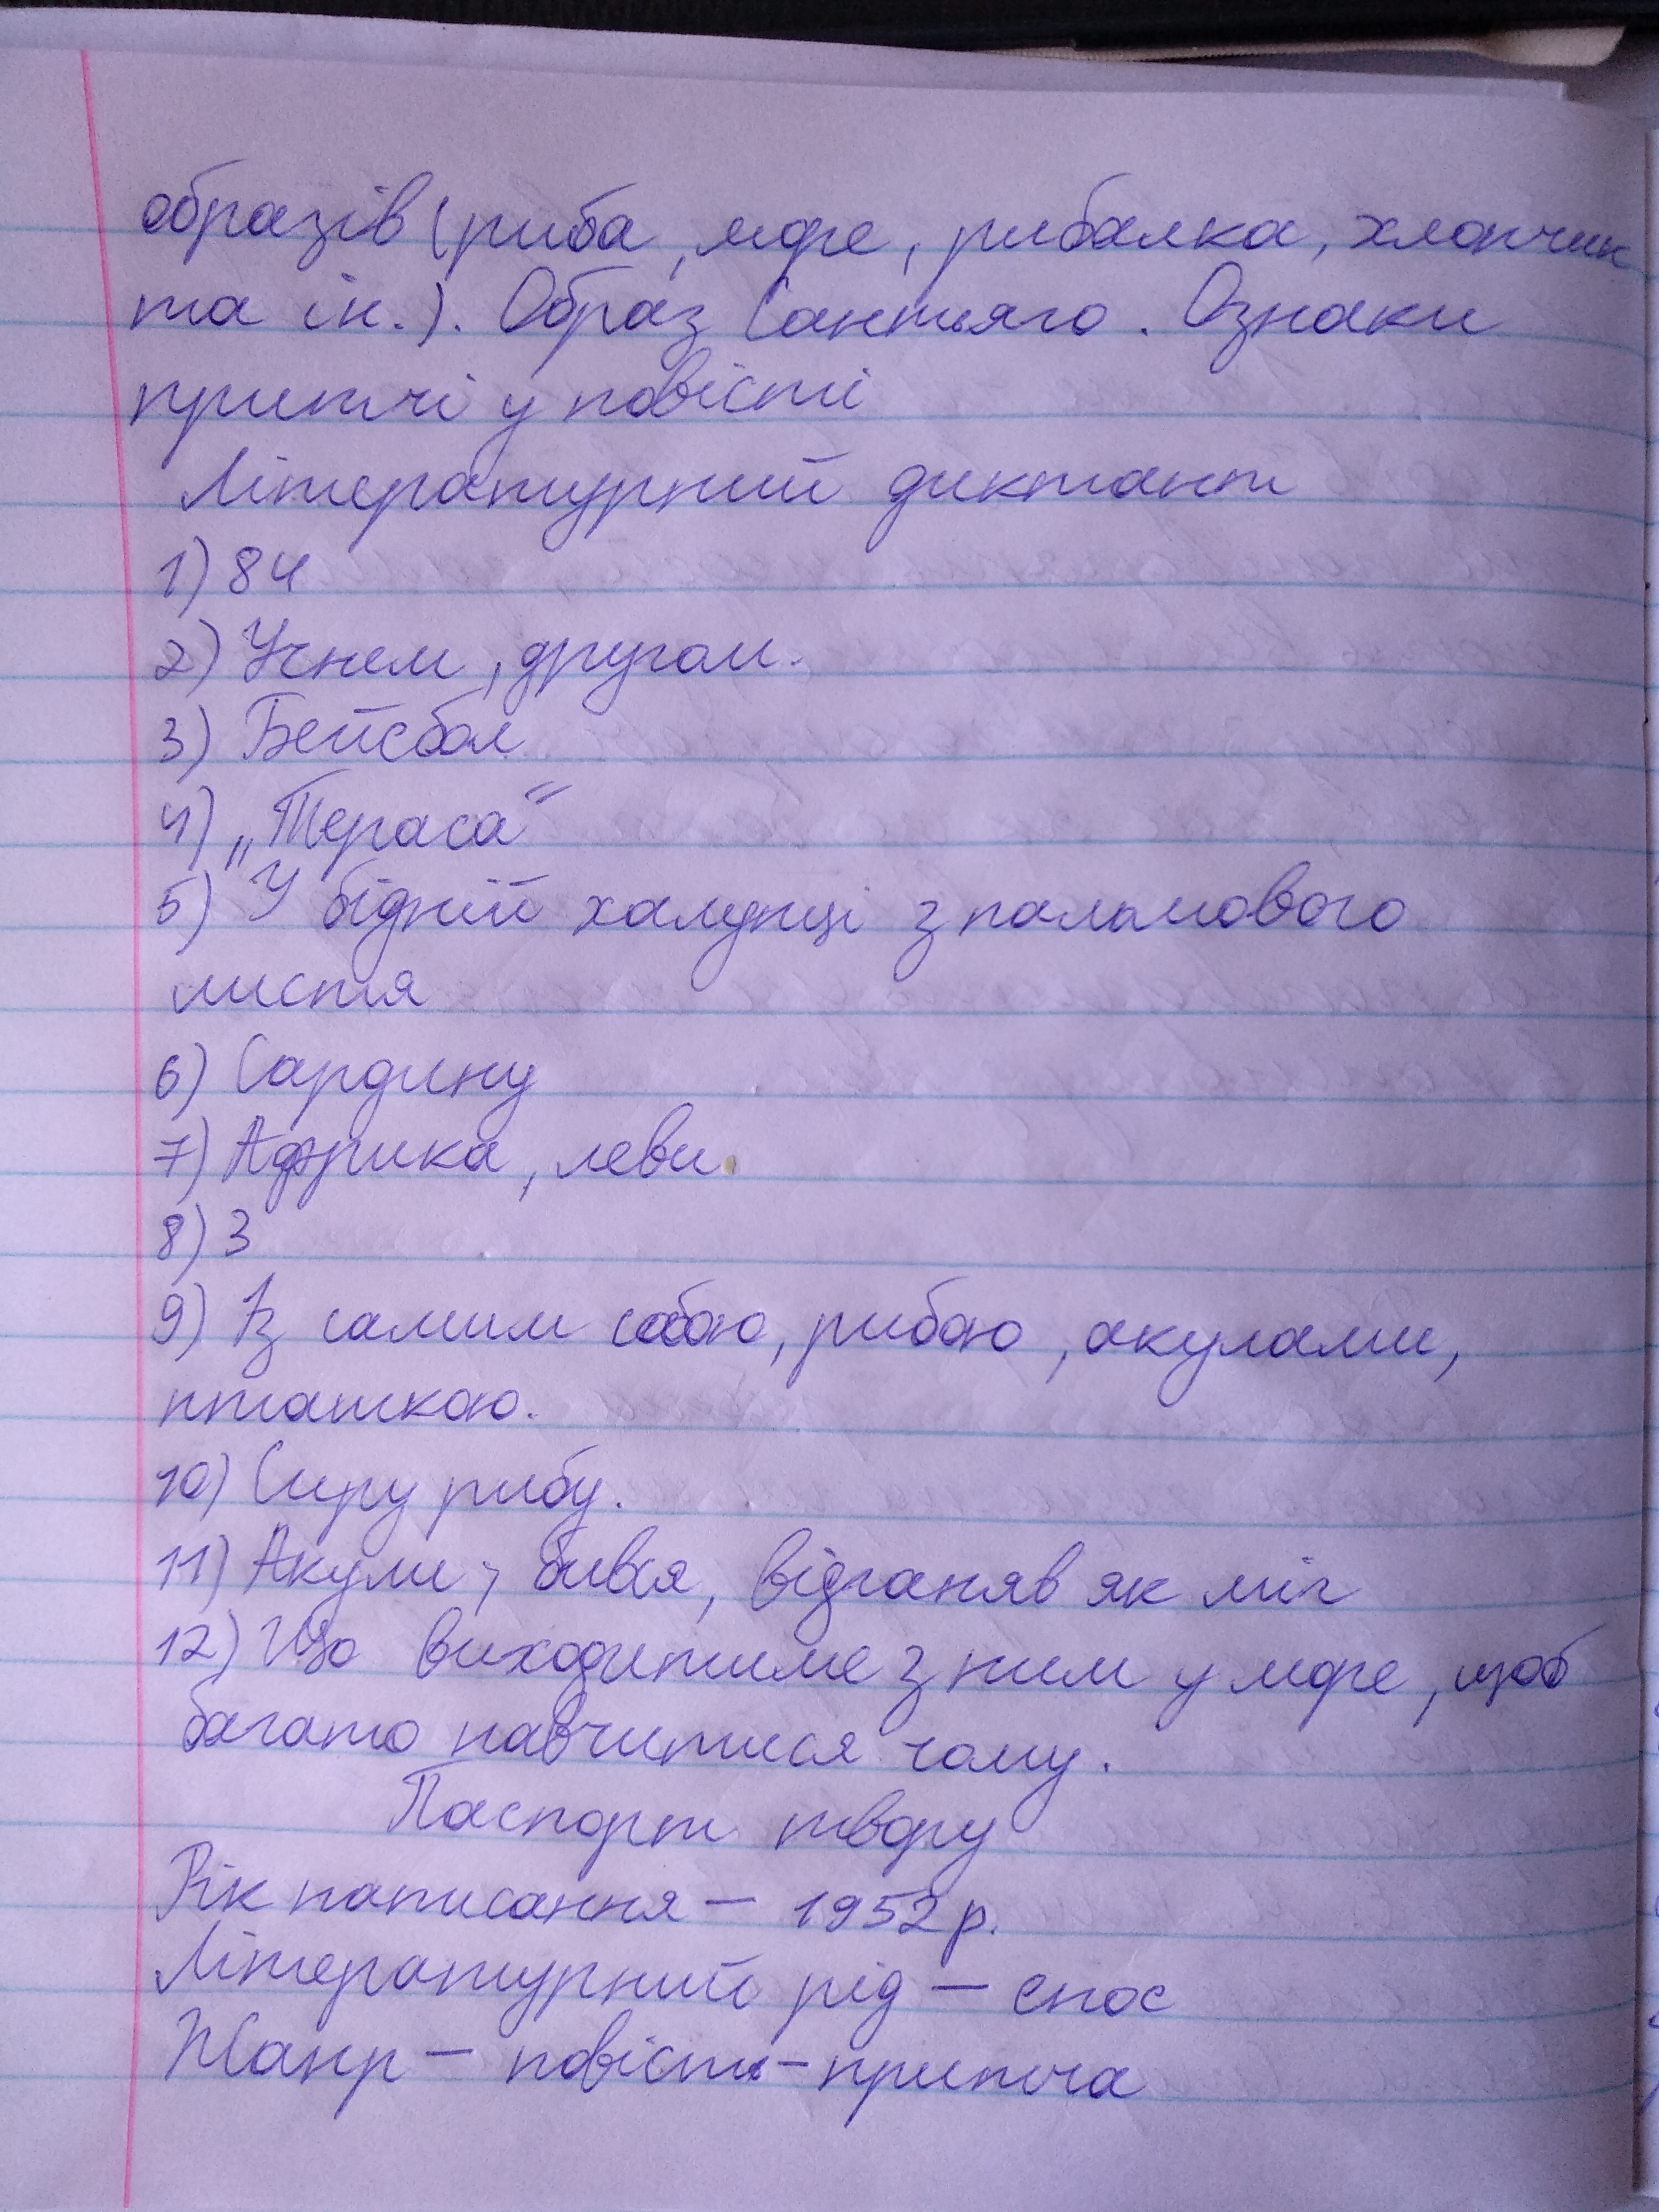 образів (риба, море, рибалка, хлопчик
та ін.). Образ Сантьяго. Ознаки
притчі у повісті
Літературний диктант
1) 84
2) Учнем, другом.
3) Бейсбол
4) „Тераса“
5) У бідній халупці з пальмового
листя
6) Сардину
7) Африка, леви.
8) 3
9) Із самим собою, рибою, акулами,
пташкою.
10) Сиру рибу.
11) Акули; бився, відганяв як міг
12) Що виходитиме з ним у море, щоб
багато навчитися чому.
Паспорт твору
Рік написання – 1952 р.
Літературний рід – епос
Жанр – повість-притча